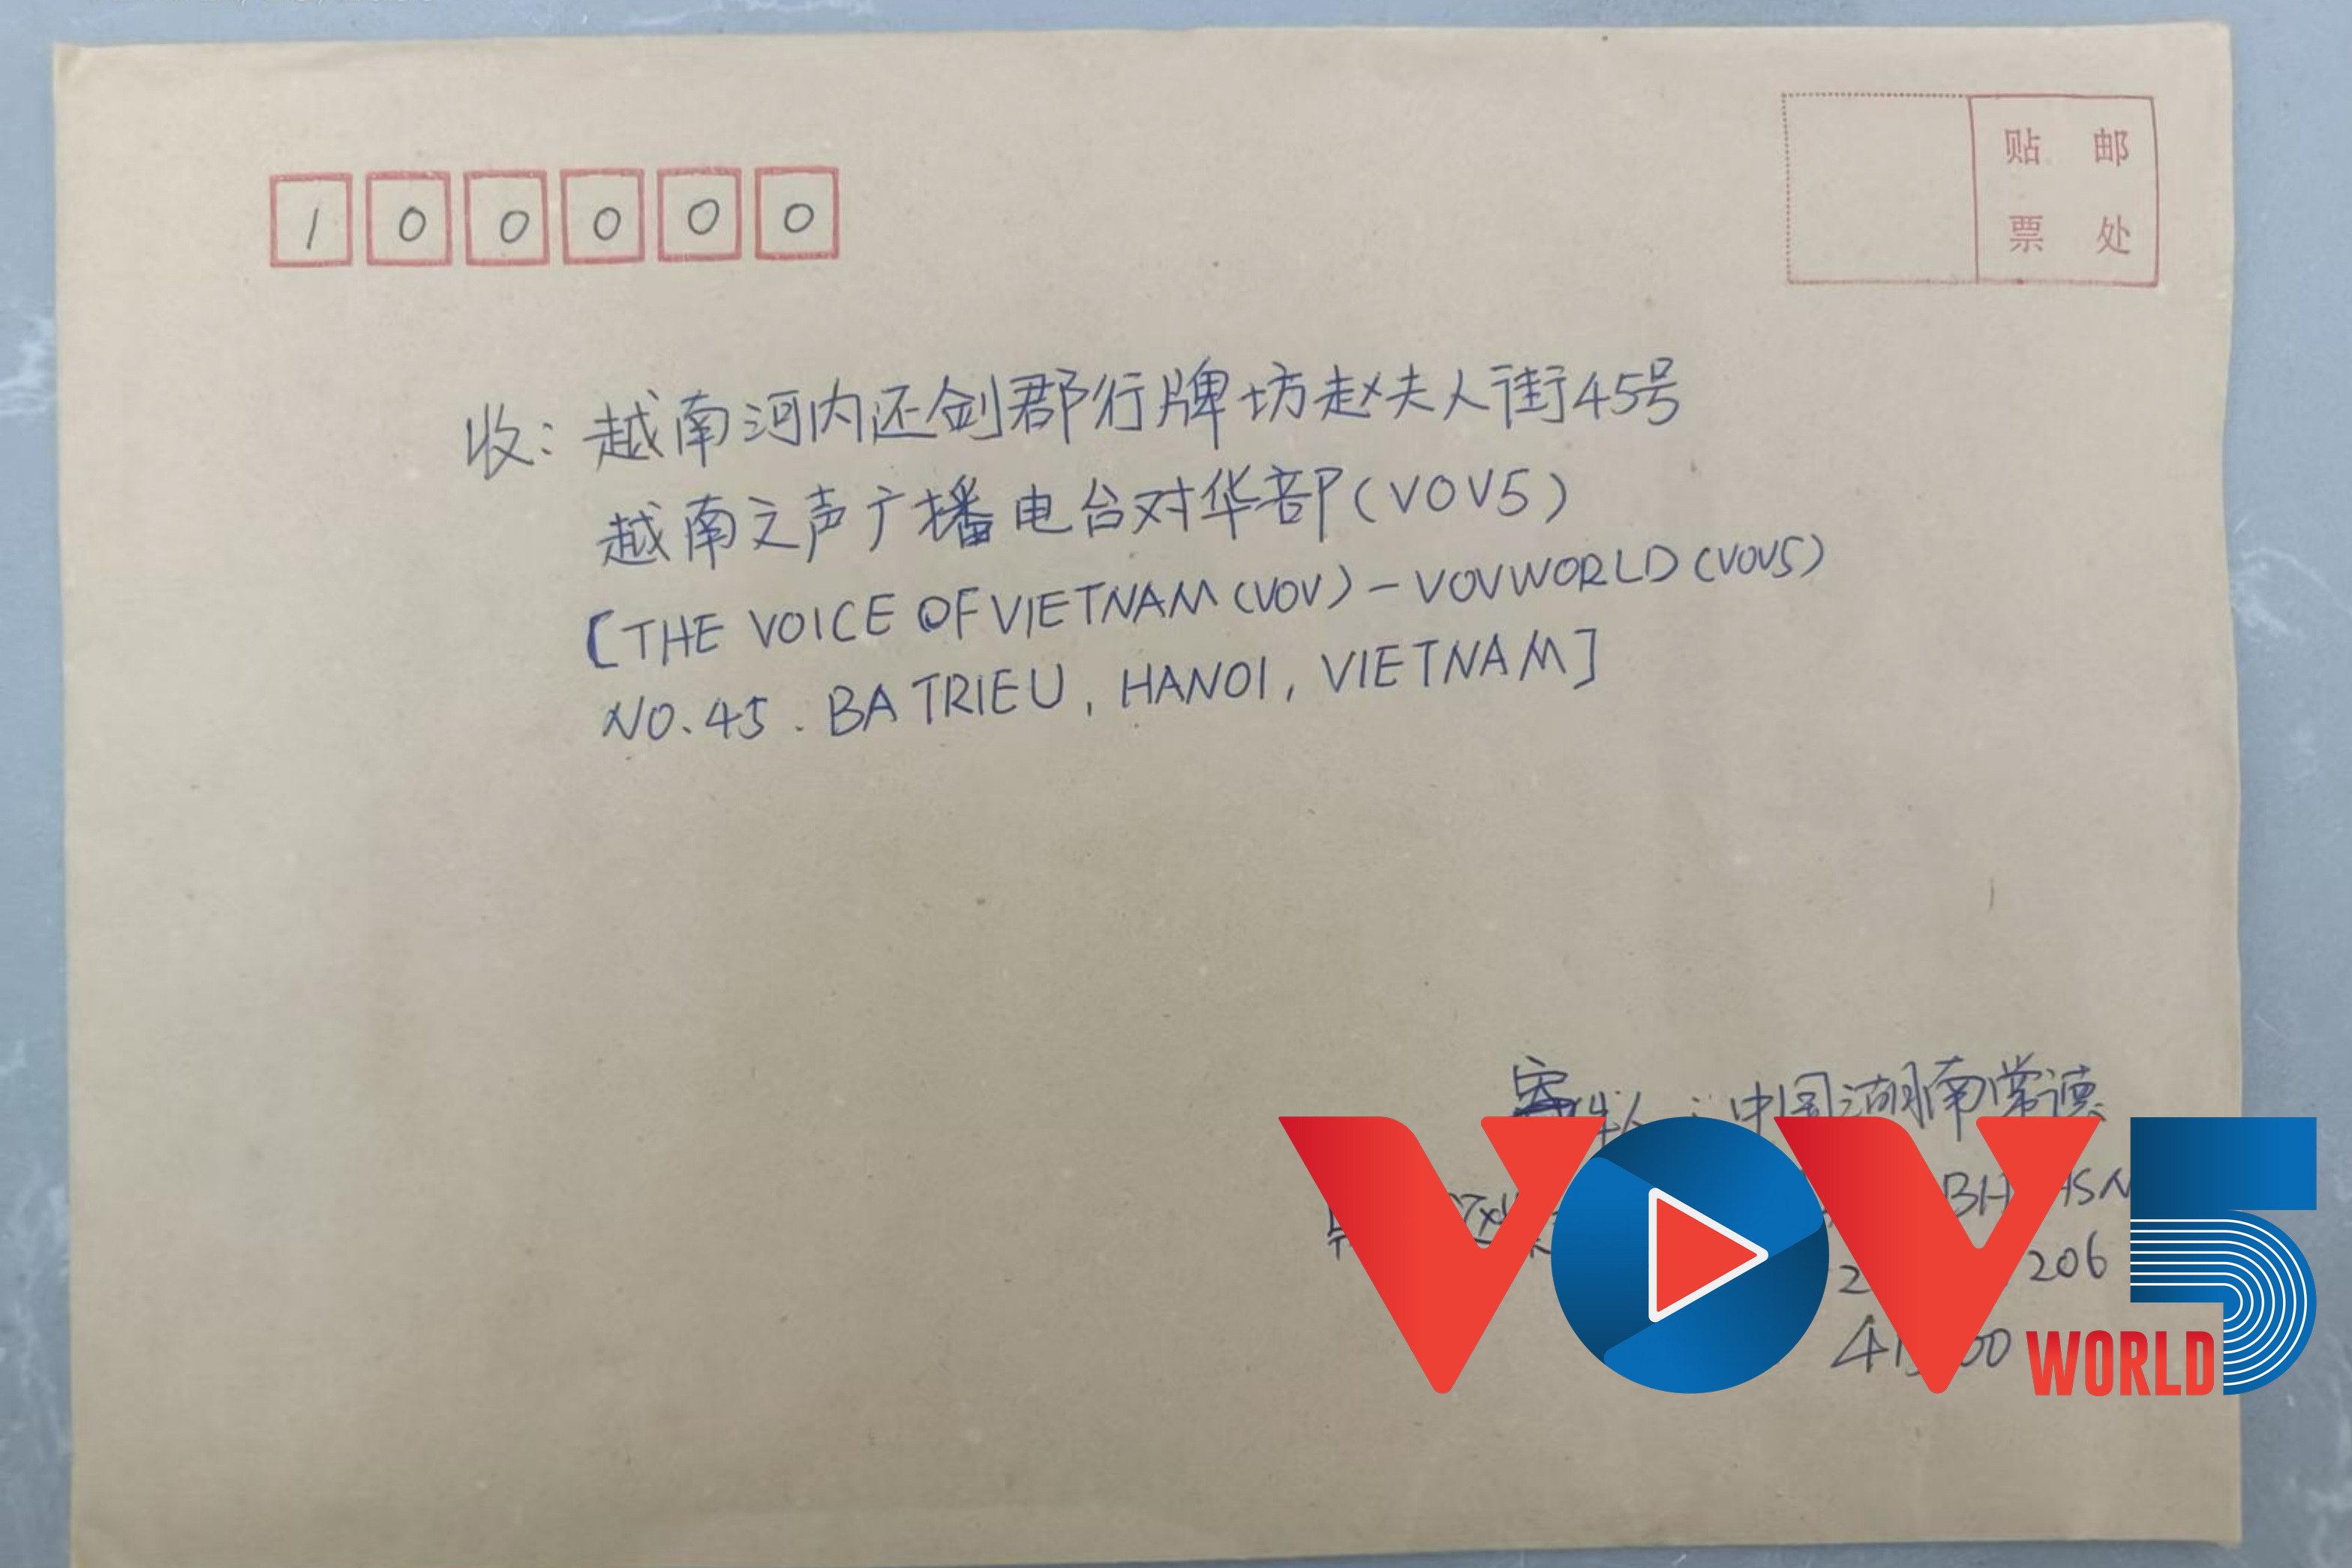 100000
贴 邮
票 处
收：越南河内还剑郡行牌坊赵夫人街45号
越南之声广播电台对华部(VOV5)
[THE VOICE OF VIETNAM (VOV) - VOVWORLD (VOV5)
NO.45. BA TRIEU, HANOI, VIETNAM]
寄件人：中国湖南常德
206
VOV5
WORLD